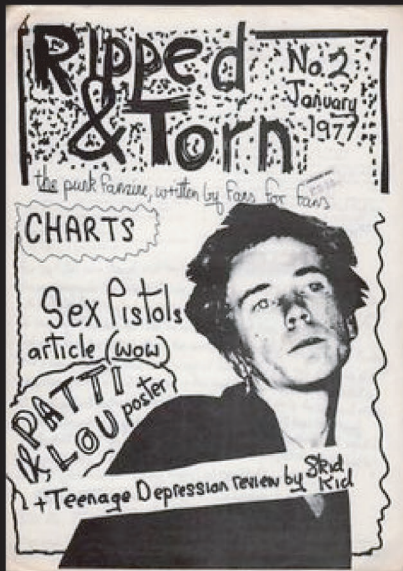 Ripped
& Torn
No.2
January
1977
the punk fanzine, written by fans for fans
CHARTS
Sex Pistols
article (WOW)
PATTI
& LOU poster
+ Teenage Depression review by Skid
Kid